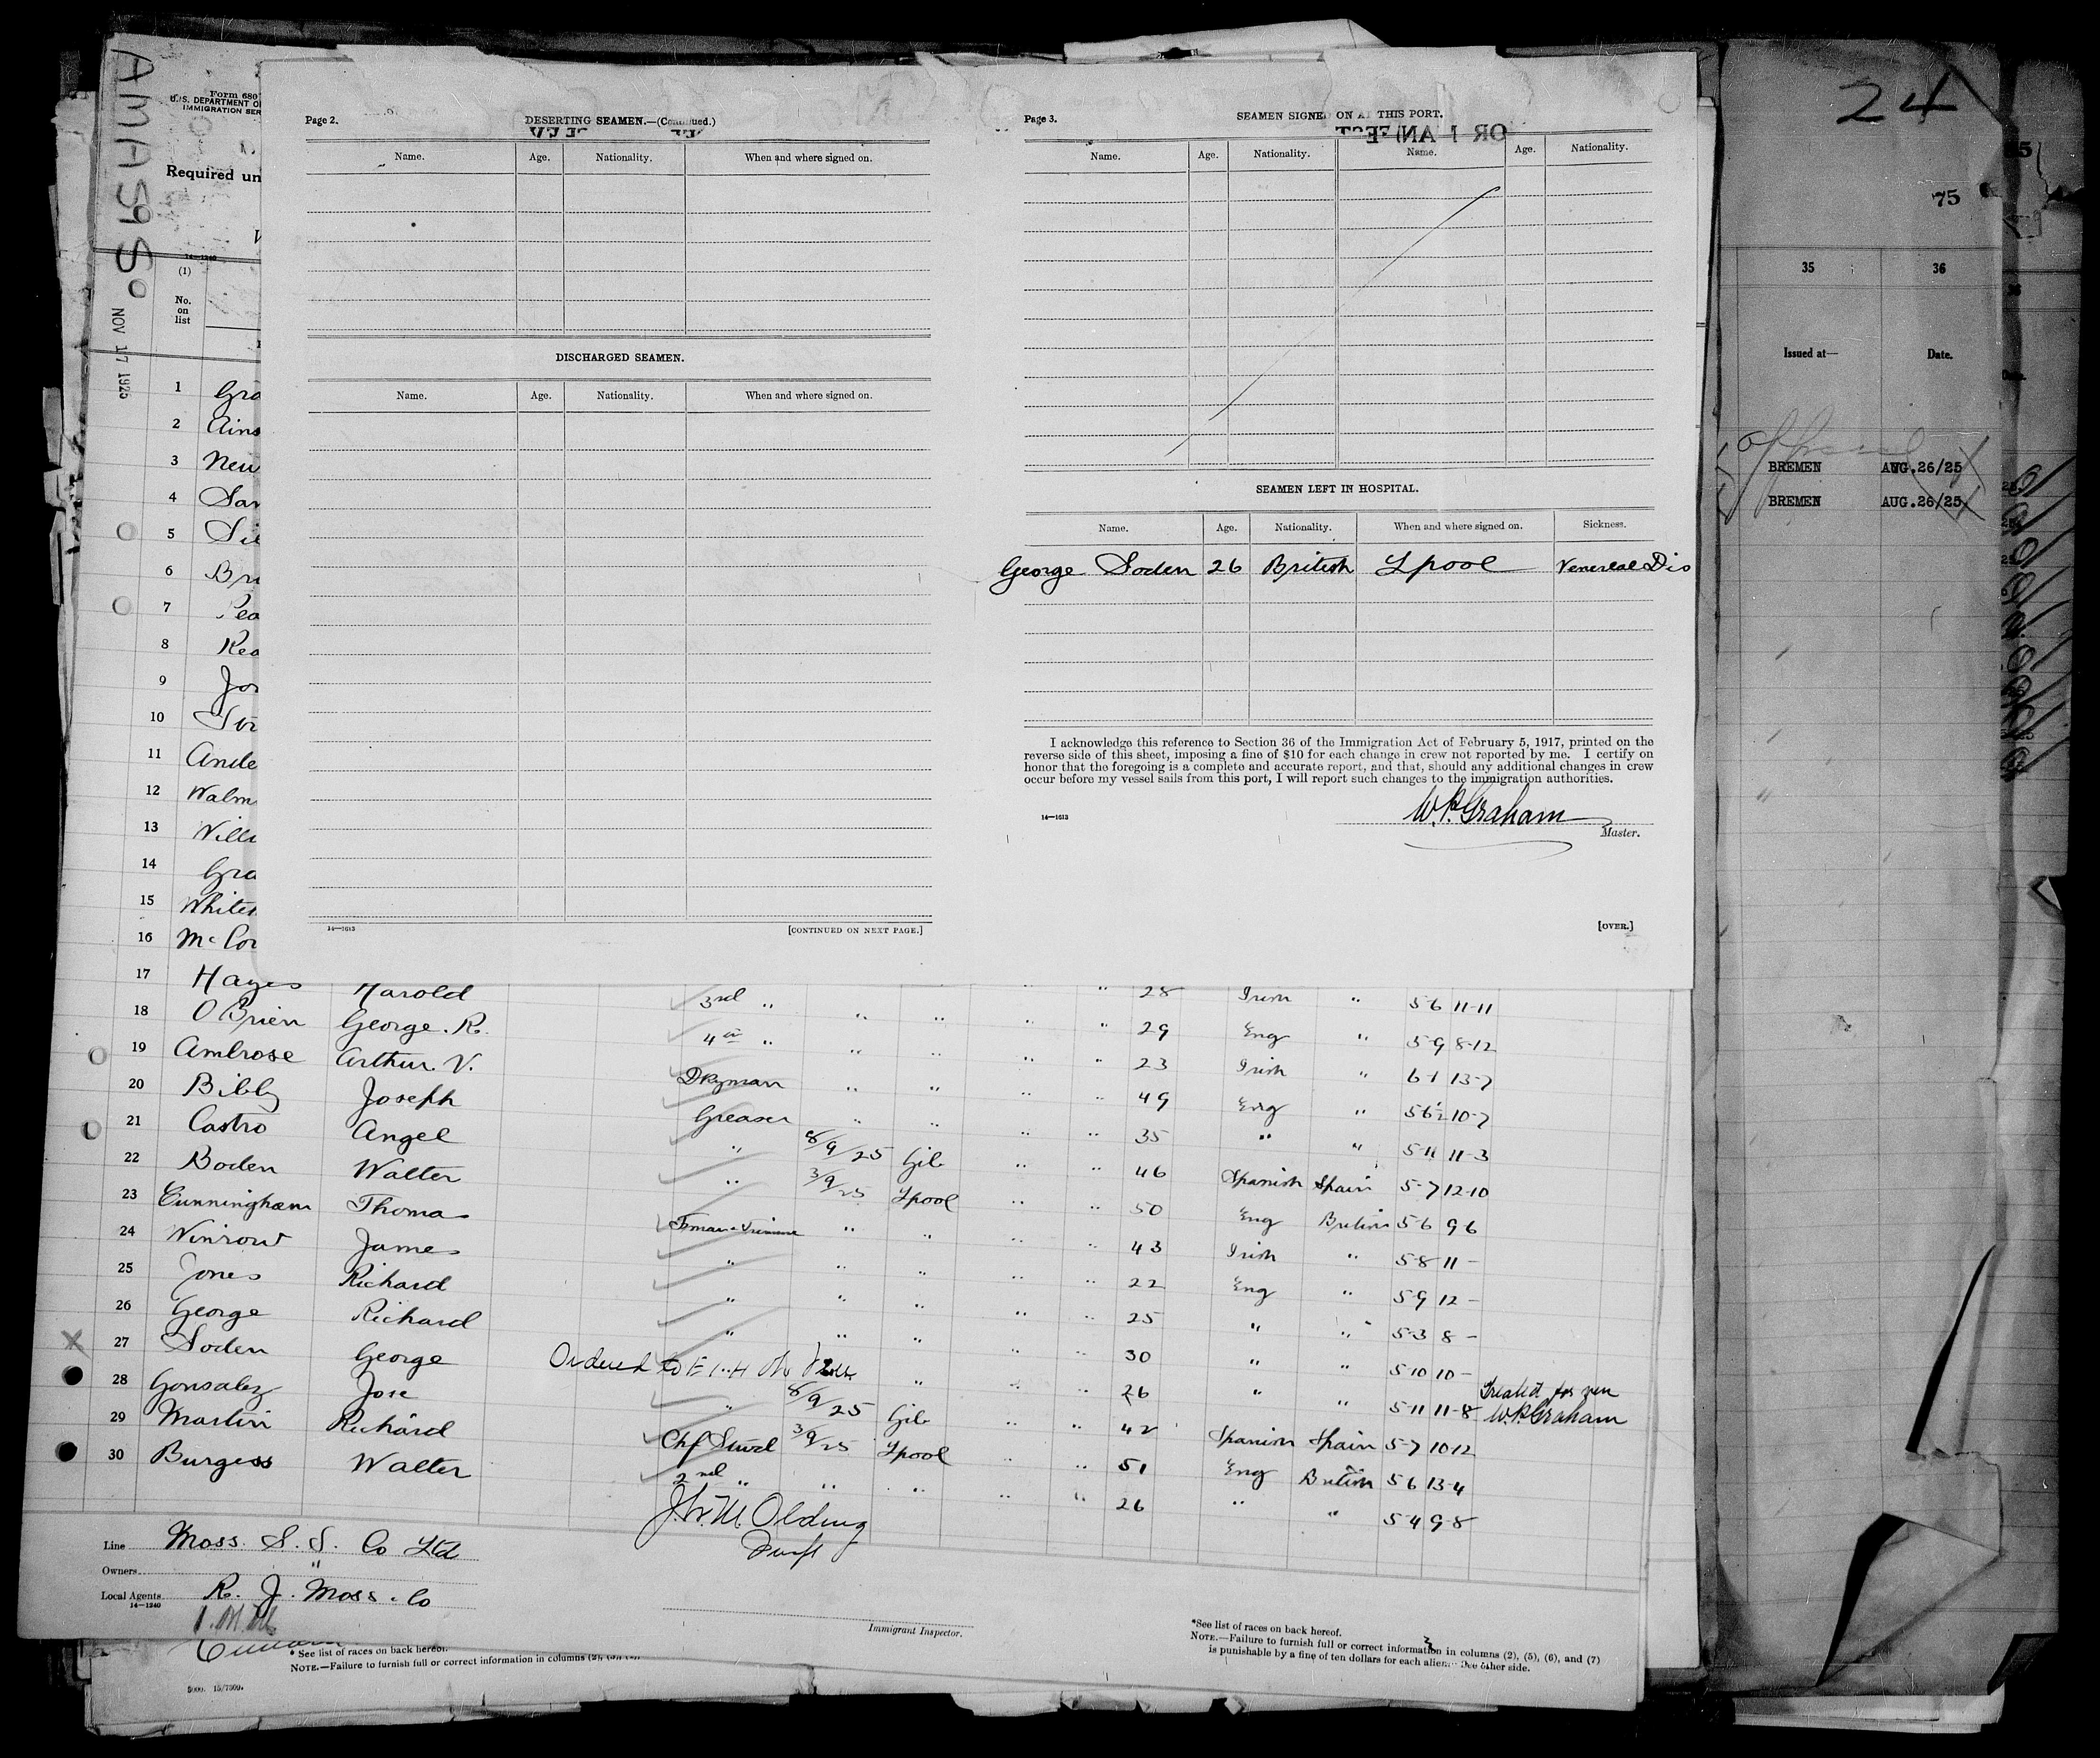 AMASIS
NOV 17 1925
Form 680
U.S. DEPARTMENT O
IMMIGRATION SER
Required un
14—1240
(1)
No.
on
list
1 Gra
2 Ains
3 New
4 San
5
6 Bri
7 Pea
8 Rea
9 Jon
10
11 Ande
12 Walm
13 Willi
14 Gra
15 White
16 McCor
Page 2.
DESERTING SEAMEN.—(Continued.)
Name. Age. Nationality. When and where signed on.
DISCHARGED SEAMEN.
Name. Age. Nationality. When and where signed on.
14—1613
[CONTINUED ON NEXT PAGE.]
Page 3.
SEAMEN SIGNED ON AT THIS PORT.
Name. Age. Nationality. Name. Age. Nationality.
SEAMEN LEFT IN HOSPITAL.
Name. Age. Nationality. When and where signed on. Sickness.
George Soden 26 British Lpool Venereal Dis
I acknowledge this reference to Section 36 of the Immigration Act of February 5, 1917, printed on the
reverse side of this sheet, imposing a fine of $10 for each change in crew not reported by me. I certify on
honor that the foregoing is a complete and accurate report, and that, should any additional changes in crew
occur before my vessel sails from this port, I will report such changes to the immigration authorities.
W.P. Graham
Master.
14—1613
[OVER.]
17 Hayes Harold 3rd " " " " " 28 Irish " 5-6 11-11
18 O'Brien George. R. 4th " " " " " 29 Eng " 5-9 8-12
19 Ambrose Arthur. V. Dkyman " " " " 23 Irish " 6-1 13-7
20 Bibby Joseph Greaser " " " " 49 Eng " 5-6½ 10-7
21 Castro Angel " 8/9/25 Gib " " 35 " " 5-11 11-3
22 Boden Walter " 3/9/25 Lpool " " 46 Spanish Spain 5-7 12-10
23 Cunningham Thomas Fman & Trimmer " " " " 50 Eng British 5-6 9-6
24 Winrow James " " " " " 43 Irish " 5-8 11 -
25 Jones Richard " " " " " 22 Eng " 5-9 12 -
26 George Richard " " " " " 25 " " 5-3 8 -
27 Soden George Ordered to " " " 30 " " 5-10 10 -
28 Gonsalez Jose " 8/9/25 Gib " " 26 " " 5-11 11-8 Treated for ven W.P. Graham
29 Martin Richard Chf Stwd 3/9/25 Lpool " " 42 Spanish Spain 5-7 10-12
30 Burgess Walter 2nd " " " " " 51 Eng British 5-6 13-4
26 " " 5-4 9-8
J.W.M. Olding
Line Moss. S. S. Co Ltd
Owners "
Local Agents R. J. Moss. Co
14—1240
Immigrant Inspector.
*See list of races on back hereof.
NOTE.—Failure to furnish full or correct information in columns (2), (5), (6), and (7)
is punishable by a fine of ten dollars for each alien. See other side.
* See list of races on back hereof.
NOTE.—Failure to furnish full or correct information in columns (2),
24
75
35 36
Issued at— Date.
BREMEN AUG.26/25
BREMEN AUG.26/25